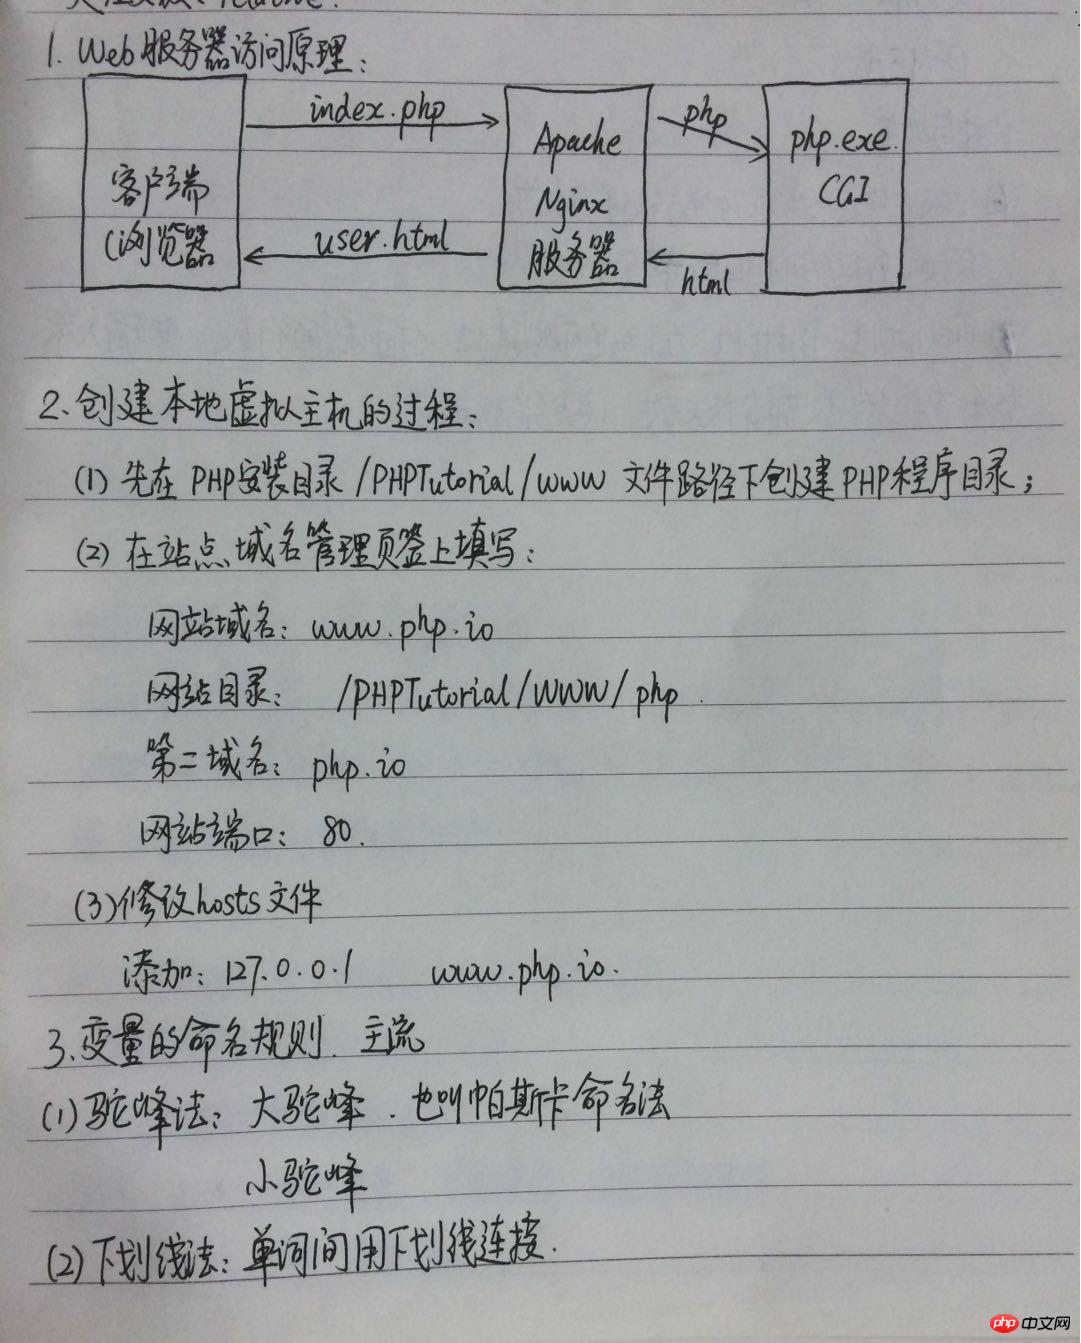 1. Web服务器访问原理:
index.php
php
php.exe
Apache
CGI
客户端
Nginx
浏览器
user.html
服务器
html
2、创建本地虚拟主机的过程:
(1) 先在 PHP安装目录 /PHPTutorial/www 文件路径下创建PHP程序目录;
(2) 在站点域名管理页签上填写:
网站域名: www.php.io
网站目录: /PHPTutorial/WWW/php.
第二域名: php.io
网站端口: 80.
(3) 修改hosts文件
添加: 127.0.0.1 www.php.io.
3、变量的命名规则. 主流
(1) 驼峰法: 大驼峰. 也叫帕斯卡命名法
小驼峰
(2) 下划线法: 单词间用下划线连接.
php 中文网